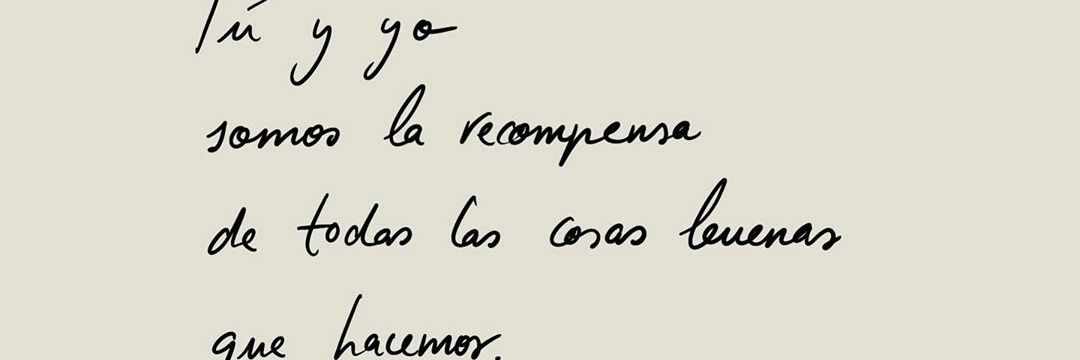 Tú y yo
somos la recompensa
de todas las cosas buenas
que hacemos.